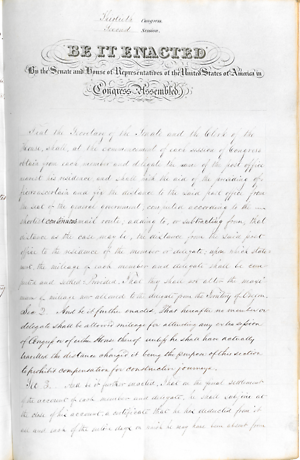 Congress.
Second Session.
BE IT ENACTED
By the Senate and House of Representatives of the United States of America in
Congress Assembled
That the Secretary of the Senate and the Clerk of the
House, shall, at the commencement of each session of Congress
obtain from each member and delegate the name of the post office
nearest his residence and shall
post office and fix the distance to the said post office from
the seat of the general government computed according to the
shortest continuous mail route, adding to, or subtracting from, that
distance as the case may be, the distance from the said post
office to the residence of the member or delegate; upon which data
the mileage of each member and delegate shall be com
puted and settled Provided, That they shall not alter the maxi
mum of mileage now allowed to the delegate from the Territory of Oregon
Sec 2. And be it further enacted, That hereafter no member or
delegate shall be allowed mileage for attending any extra session
of Congress or of either House thereof unless he shall have actually
travelled the distance charged it being the purpose of this section
to prohibit compensation for constructive journeys.
Sec 3. And be it further enacted, That in the final settlement
of the account of each member and delegate, he shall
the case of his account, a certificate that he has deducted from it